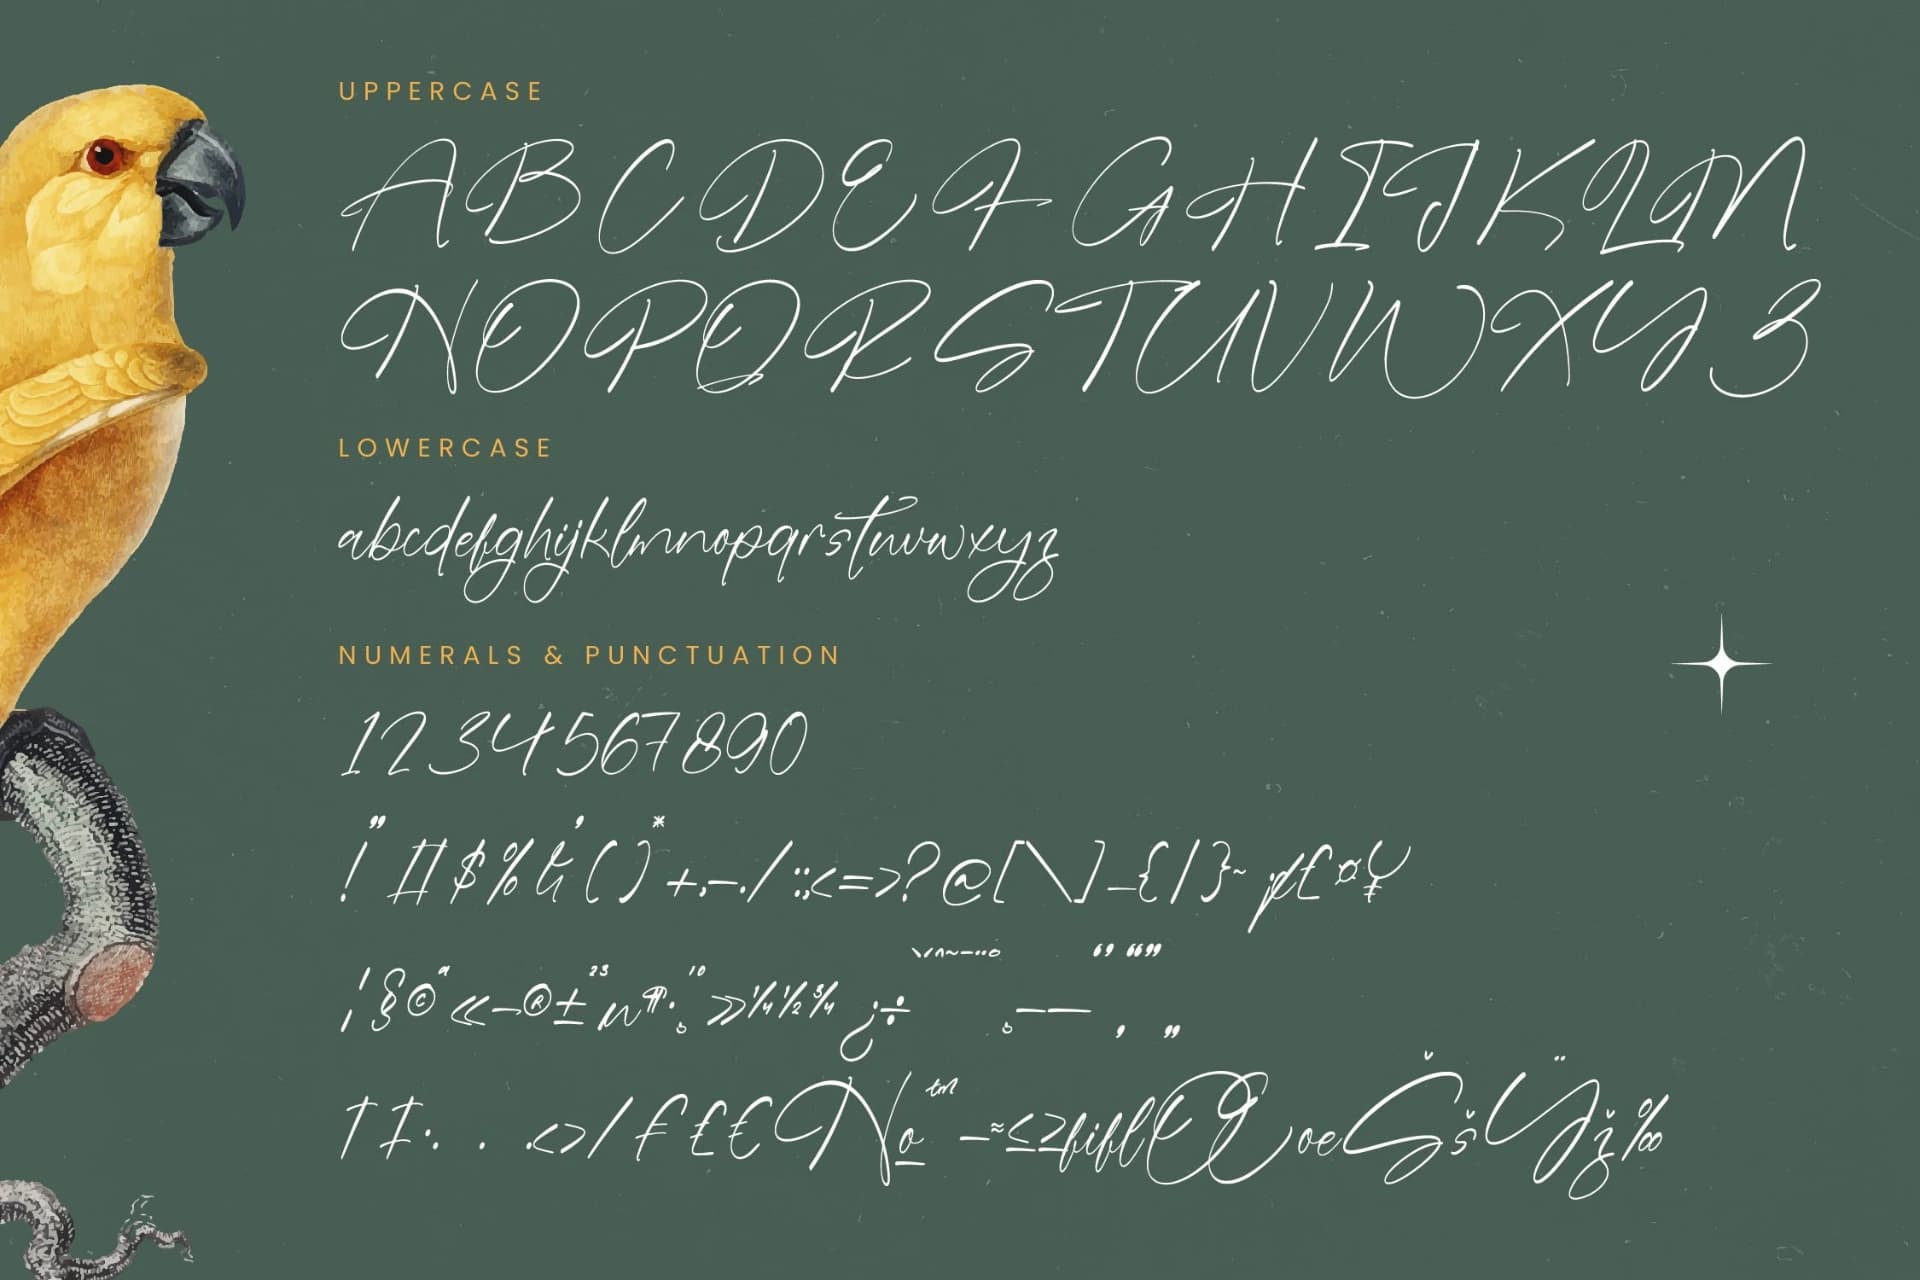 UPPERCASE
ABCDEFGHIJKLM
NOPQRSTUVWXYZ
LOWERCASE
abcdefghijklmnopqrstuvwxyz
NUMERALS & PUNCTUATION
1234567890
!"#$%&'()*+,-./:;<=>?@[\]_{|}~¢£¤¥
¦§©ª«-®±²³µ¶·¸¹º»¼½¾¿÷ˋˊˆ˜¯˙¨˚¸–—‘’‚“”„
†‡•…‹›⁄₣₤€№™−≈≤≥fiflŒœŠšŸž‰